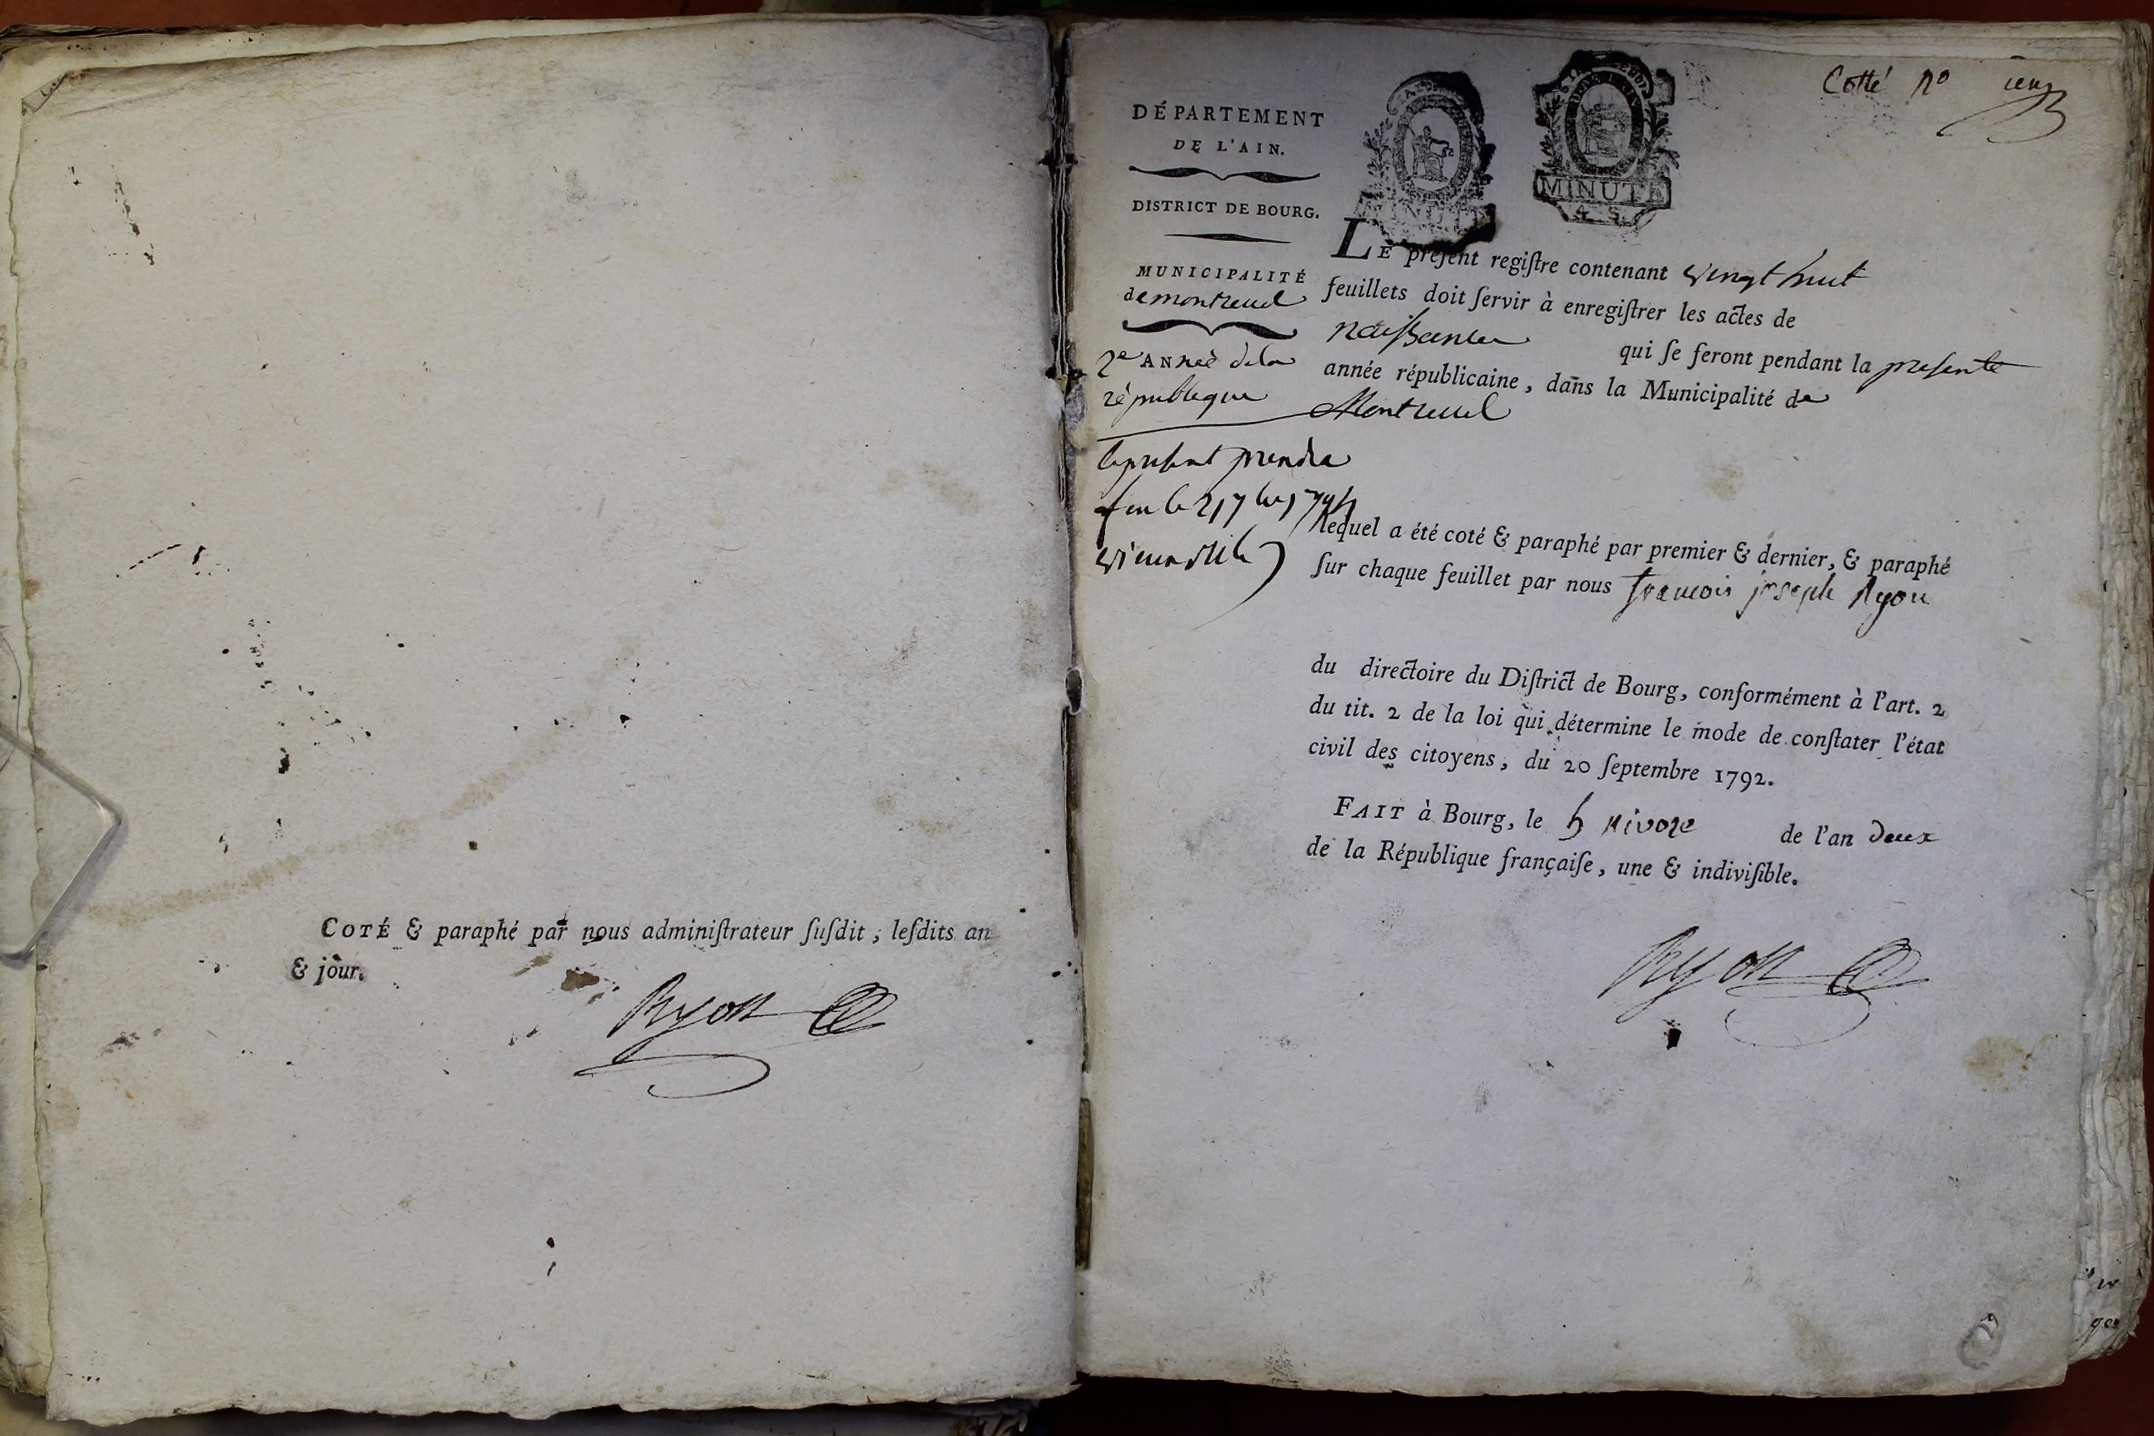 COTÉ & paraphé par nous adminiſtrateur ſuſdit, leſdits an
& jour.
Ryon
Cotté No
DÉPARTEMENT
DE L'AIN.
DISTRICT DE BOURG.
MUNICIPALITÉ
de montreuel
2e ANneè dela
republeque
MINUTE
MINUTE
4. S.
LE préſent regiſtre contenant vingt huit
feuillets doit ſervir à enregiſtrer les actes de
naiſſance qui ſe feront pendant la preſente
année républicaine, dans la Municipalité de
Montreuel
le preſent prendra
fin le
vieux stile
lequel a été coté & paraphé par premier & dernier, & paraphé
ſur chaque feuillet par nous francois joseph Ryon
du directoire du Diſtrict de Bourg, conformément à l'art. 2
du tit. 2 de la loi qui détermine le mode de conſtater l'état
civil des citoyens, du 20 ſeptembre 1792.
FAIT à Bourg, le 5 nivose de l'an deux
de la République françaiſe, une & indiviſible.
Ryon